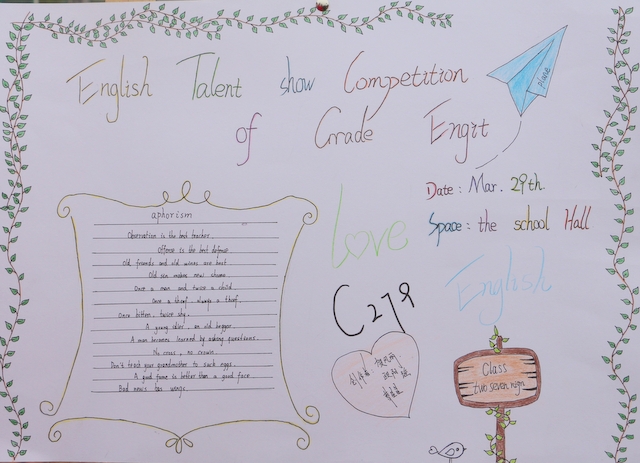 English Talent show Competition
of Grade Engit
Date: Mar. 29th.
Space: the school Hall
Love
English
C279
aphorism
Observation is the best teacher.
Offense is the best defense
Old friends and old wines are best.
Old sin makes new shame.
Once a man and twice a child.
Once a thief, always a thief.
Once bitten, twice shy.
A young idler, an old beggar.
A man becomes learned by asking questions.
No cross, no crown.
Don't teach your grandmother to suck eggs.
A good fame is better than a good face.
Bad news has wings.
Class
two seven nign